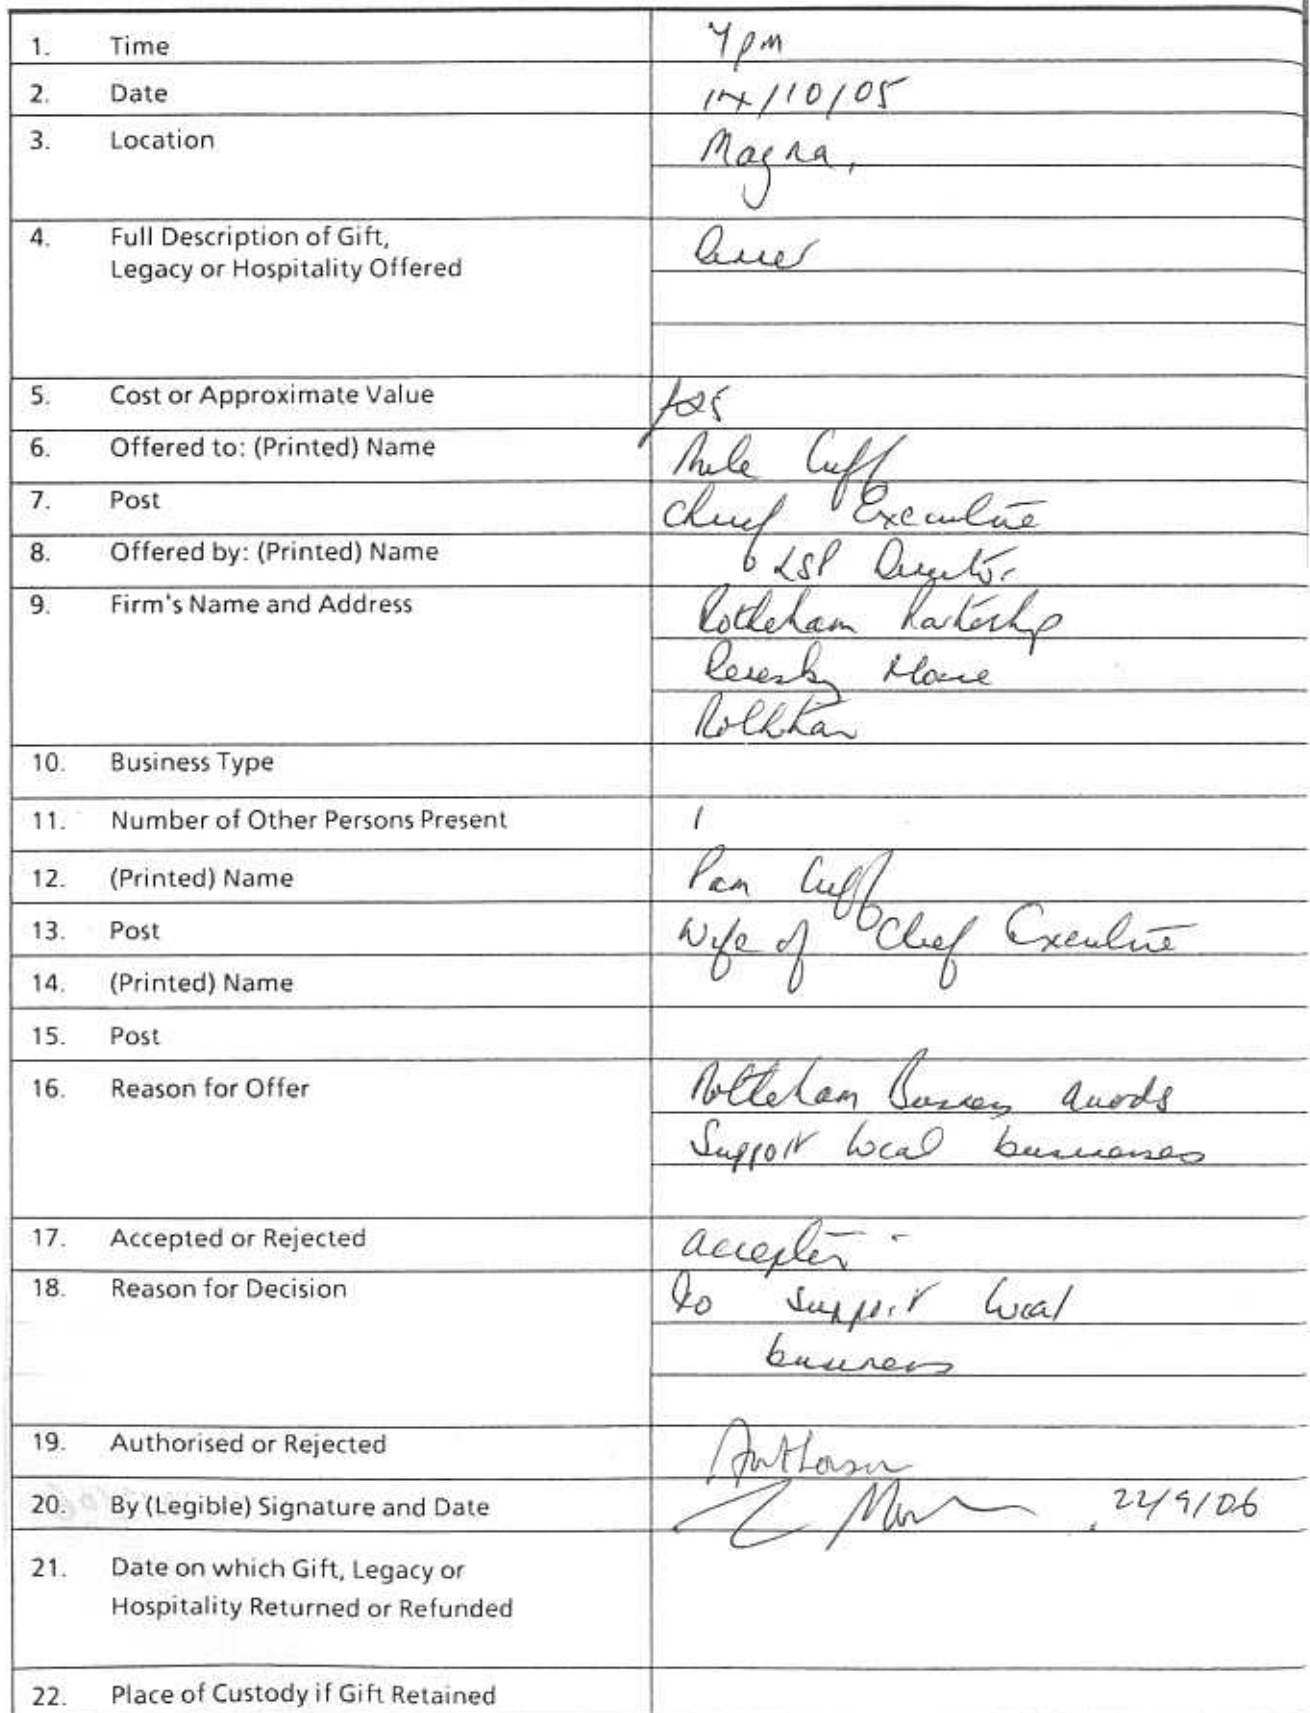 1. Time 7pm
2. Date 14/10/05
3. Location Magna,
4. Full Description of Gift, Dinner
Legacy or Hospitality Offered
5. Cost or Approximate Value £25
6. Offered to: (Printed) Name Mike Cuff
7. Post Chief Executive
8. Offered by: (Printed) Name LSP Director
9. Firm's Name and Address Rotherham Partnership
Reresby House
Rotherham
10. Business Type
11. Number of Other Persons Present 1
12. (Printed) Name Pam Cuff
13. Post Wife of Chief Executive
14. (Printed) Name
15. Post
16. Reason for Offer Rotherham Business Awards
Support local businesses
17. Accepted or Rejected accepted
18. Reason for Decision to support local
business
19. Authorised or Rejected
20. By (Legible) Signature and Date 22/9/06
21. Date on which Gift, Legacy or
Hospitality Returned or Refunded
22. Place of Custody if Gift Retained